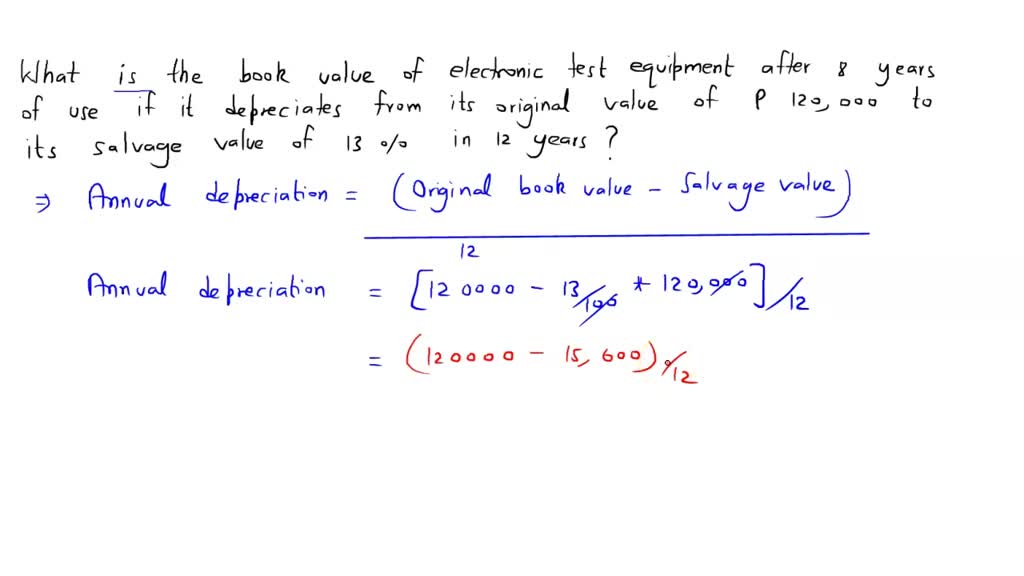 What is the book value of electronic test equipment after 8 years
of use if it depreciates from its original value of P 120,000 to
its salvage value of 13 % in 12 years ?
⇒ Annual depreciation = (Original book value - Salvage value)
12
Annual depreciation = [120000 - 13/100 * 120,000]/12
= (120000 - 15,600)/12